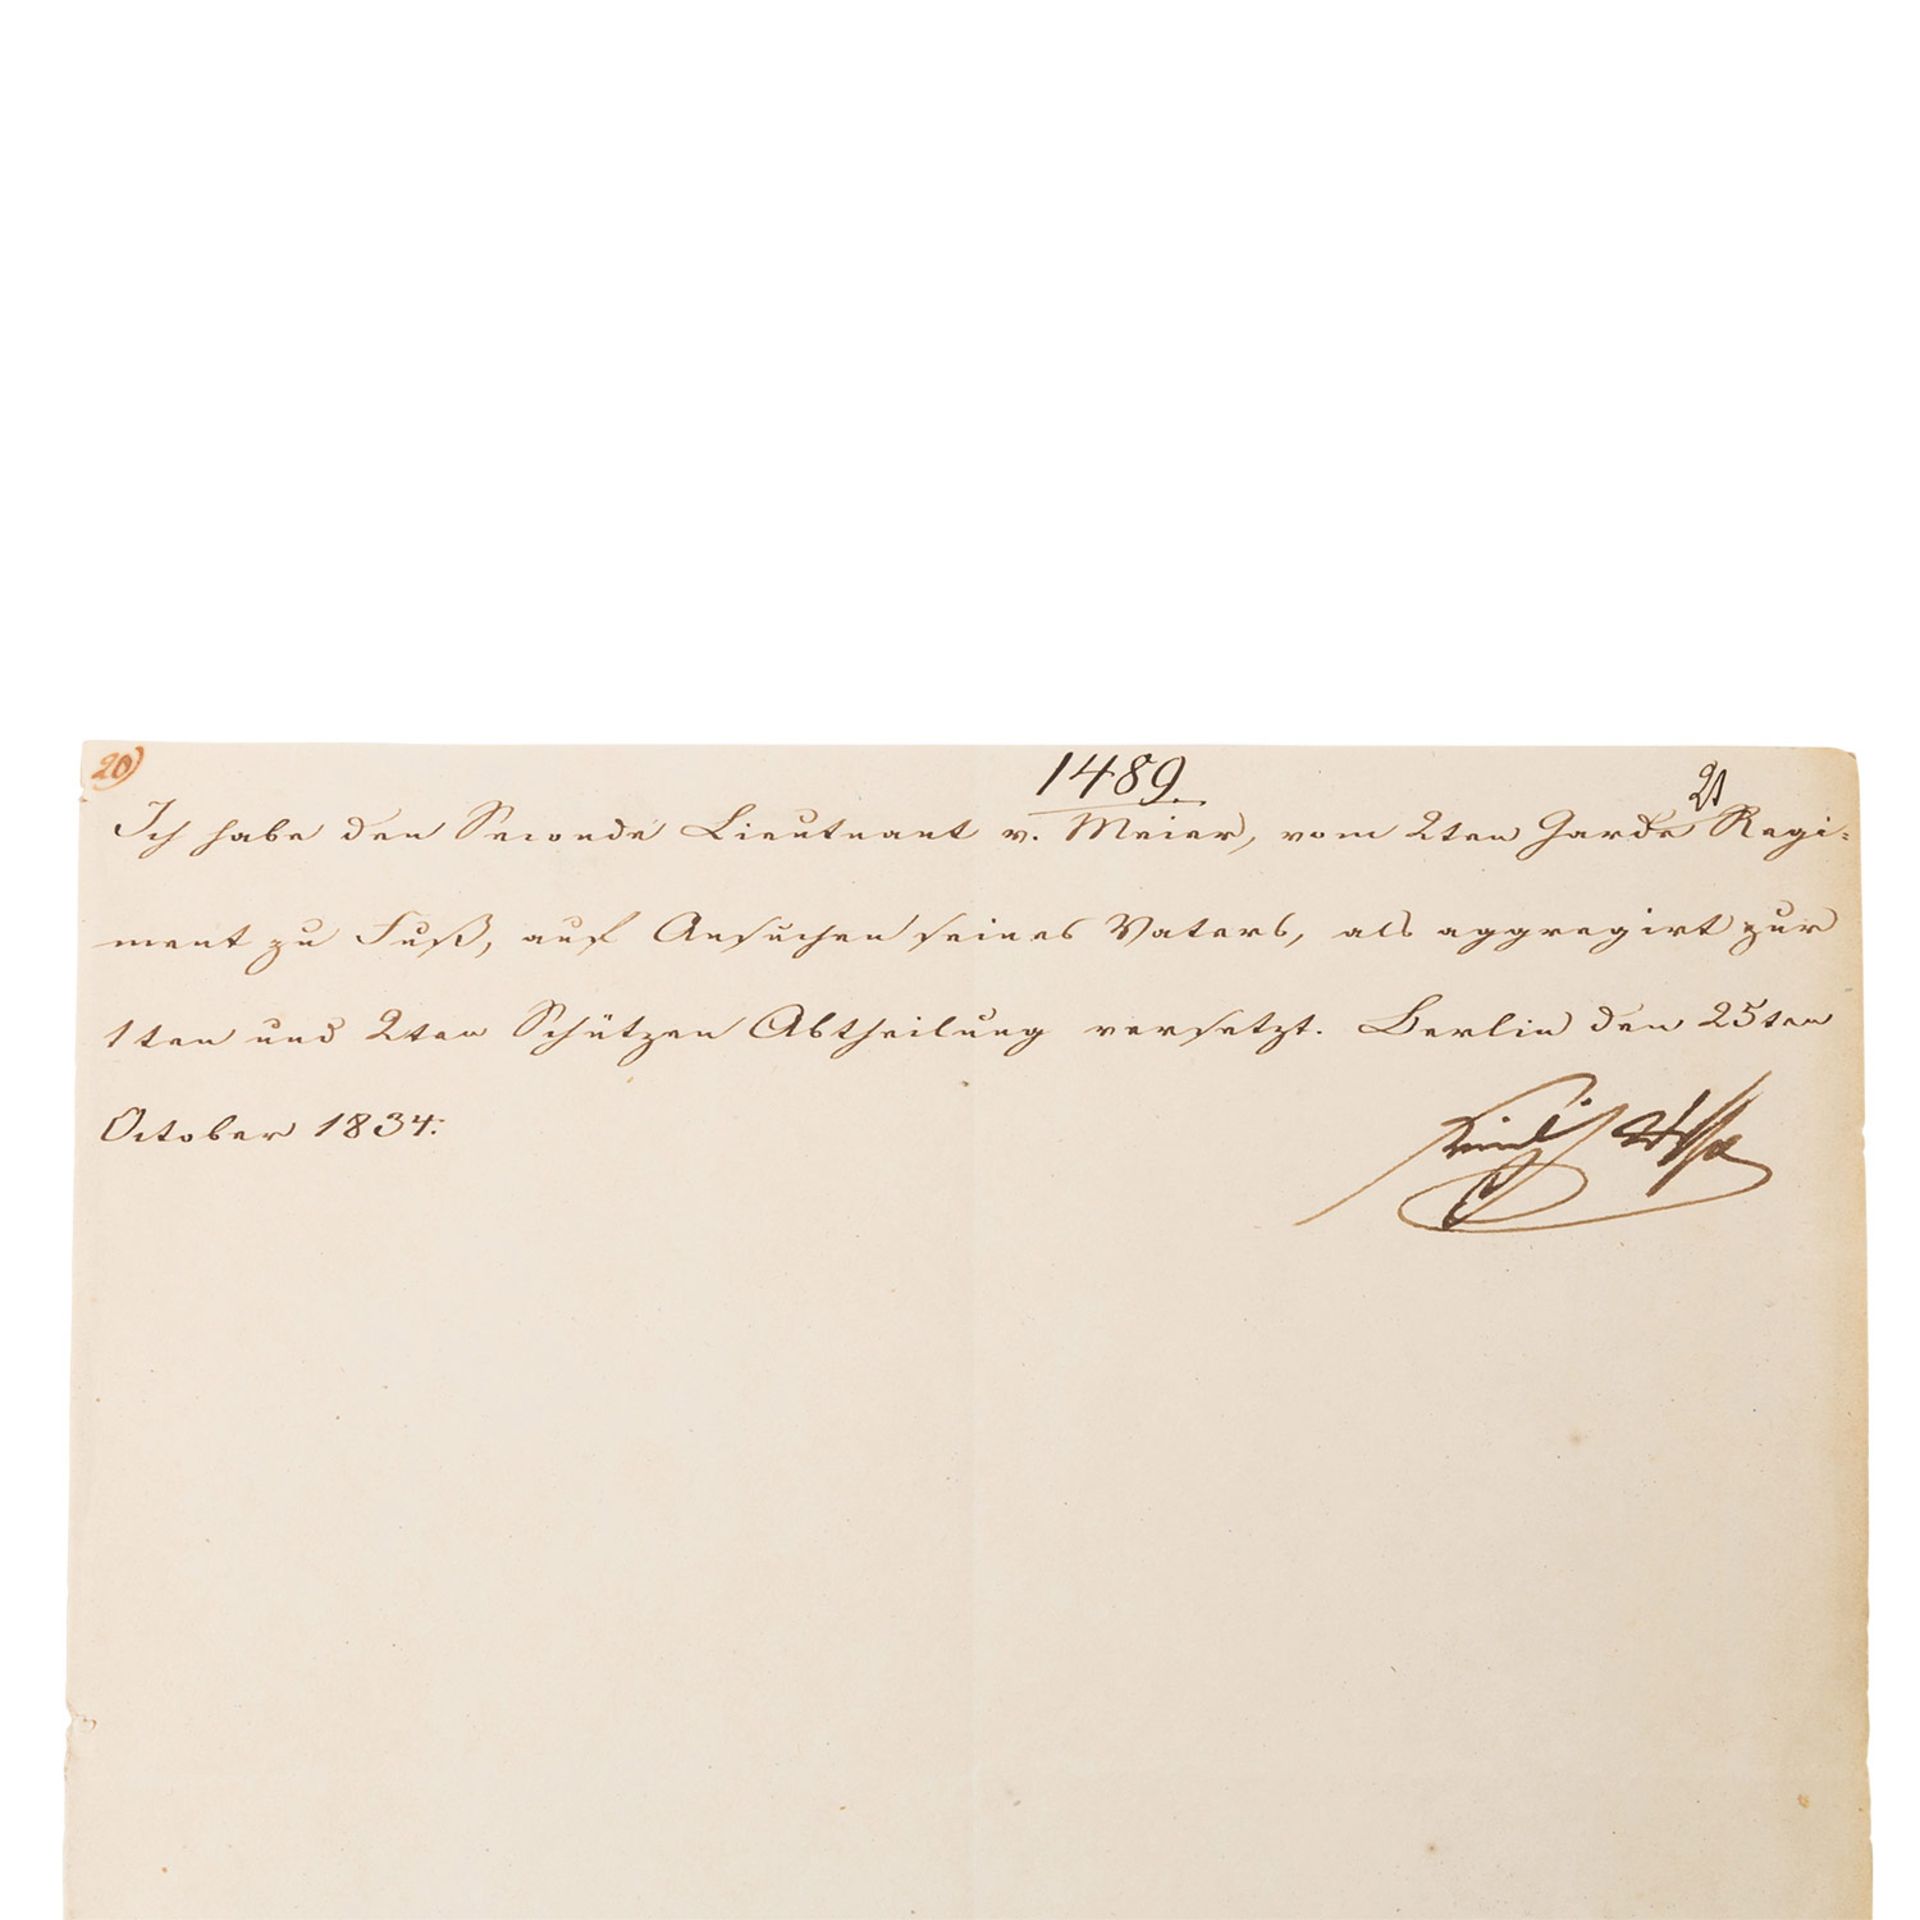 20)
1489.
Ich habe den Seconde Lieutnant v. Meier, vom 2ten Garde Regi-
ment zu Fuß, auf Ansuchen seines Vaters, als aggregirt zur
1ten und 2ten Schützen Abtheilung versetzt. Berlin den 25ten
October 1834.